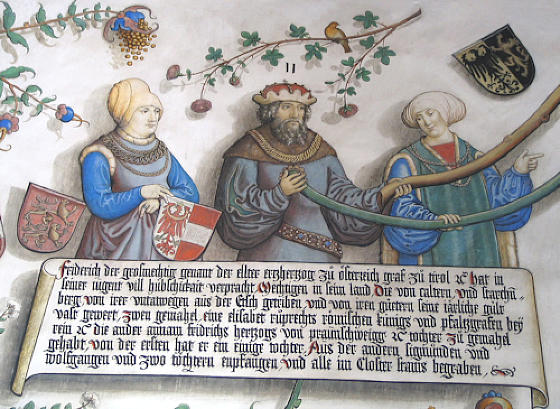 11
Friderich der grosmechtig genant der ellter erzherzog zu österreich graf zu tirol ⁊c hat in
seiner iugent vill hübschikait verpracht Mechtigen in seim land Die von caltern und starchn=
berg, von irer untatwegen aus der Etsch getriben, und von iren güetern seine iärliche gült
vast gewert, zwen gemahel, eine elisabet rüprechts römischen künigs und pfalzgrafen bey
rein ⁊c die ander annam fridrichs herzogs von praunschweigg ⁊c tochter zu gemahel
gehabt, von der ersten hat er ein einige tochter, Aus der andern sigmunden und
wolfgangen und zwo töchtern enpfangen, und alle im Closter stams begraben,